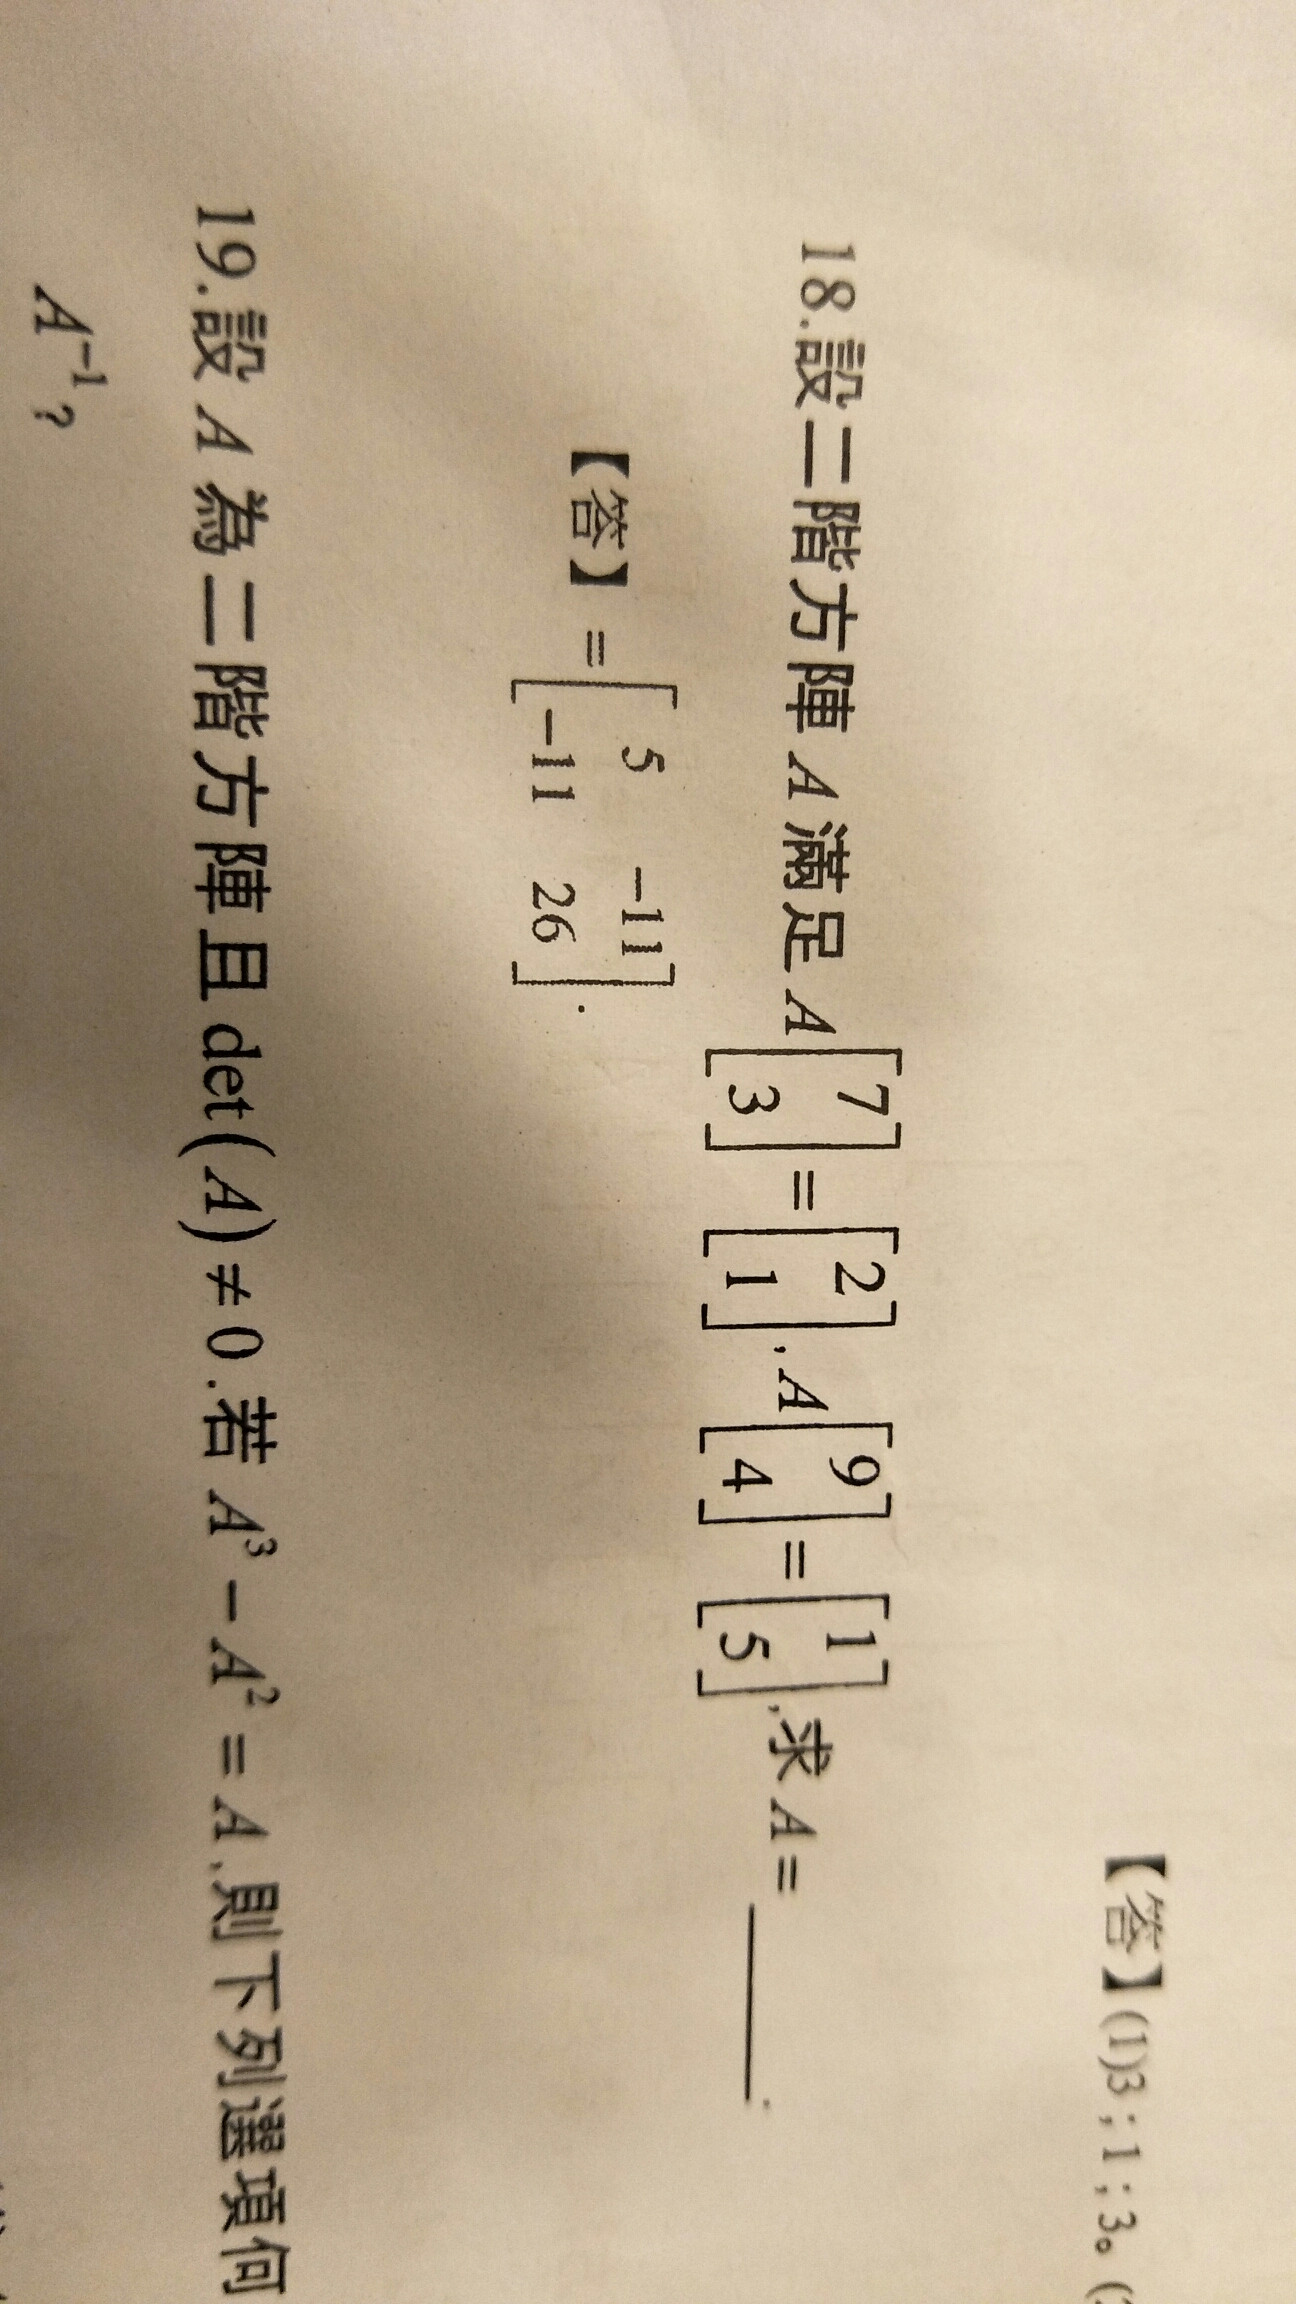 【答】(1)3;1;3。(2
18.設二階方陣 A 滿足 A[7 3] = [2 1], A[9 4] = [1 5], 求 A = ______.
【答】= [5 -11
-11 26].
19.設 A 為二階方陣且 det(A) ≠ 0.若 A³ − A² = A, 則下列選項何
A⁻¹?